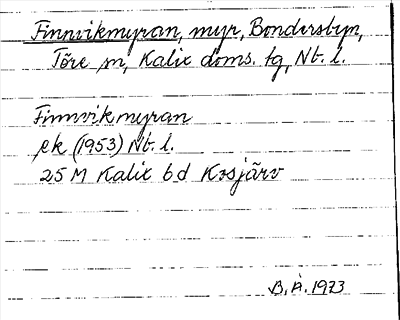 Finnvikmyran, myr, Bondersbyn,
Töre sn, Kalix doms. tg, Nb. l.
Finnvikmyran
ek (1953) Nb. l.
25 M Kalix bd Kosjärv
B. Å. 1973